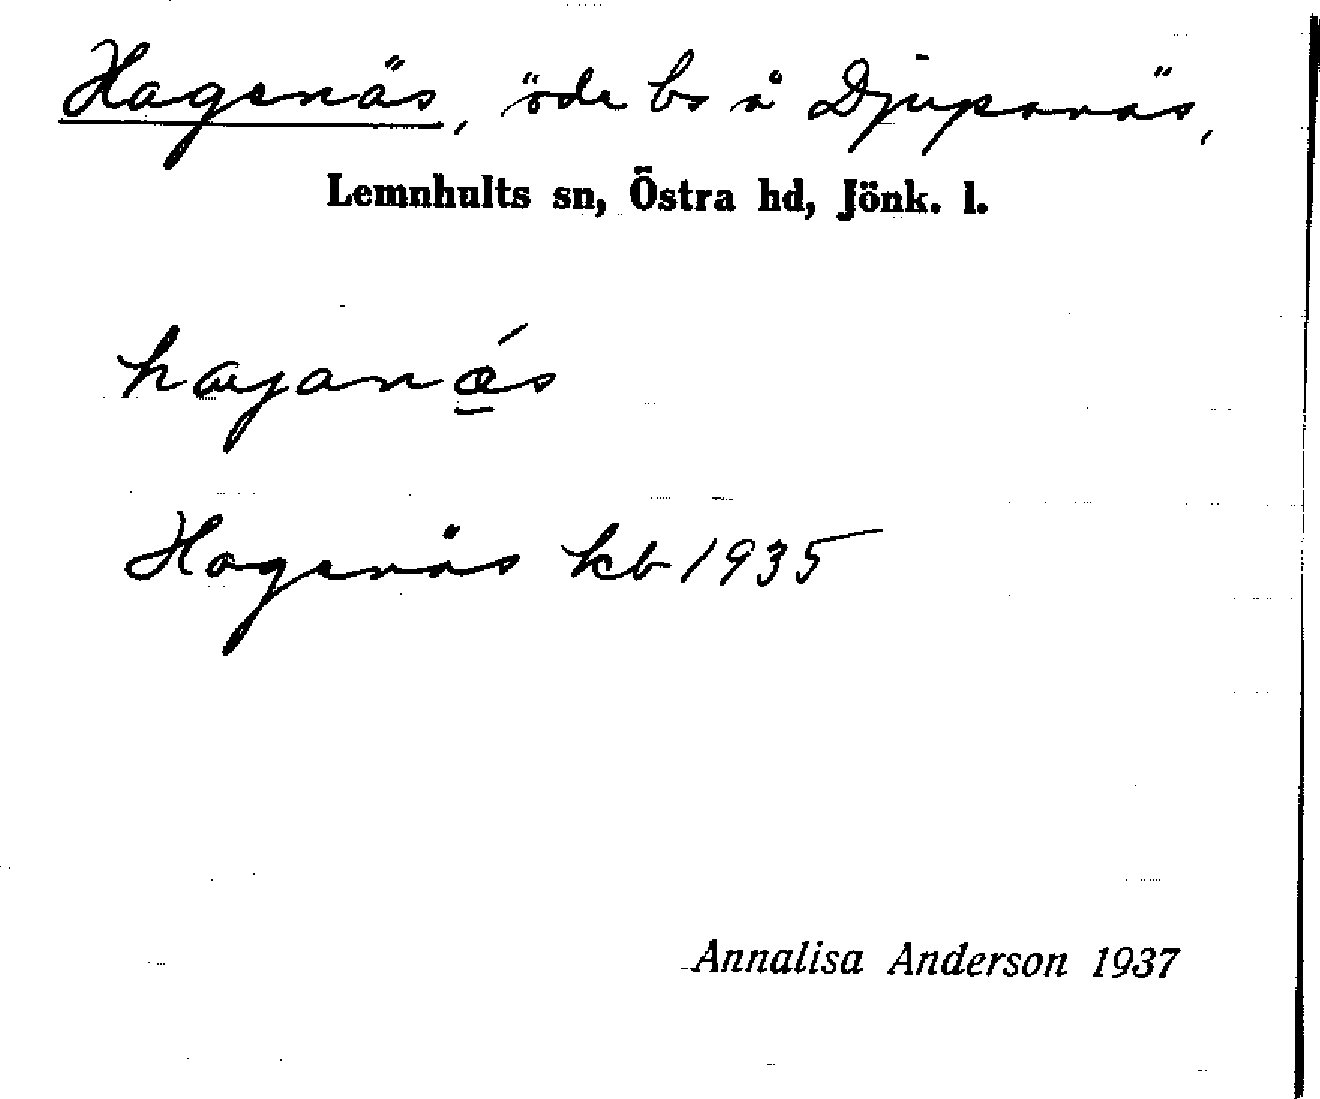 Hagenäs, öde bs å Djupanäs,
Lemnhults sn, Östra hd, Jönk. l.
haganǽs
Hagenäs kb 1935
Annalisa Anderson 1937